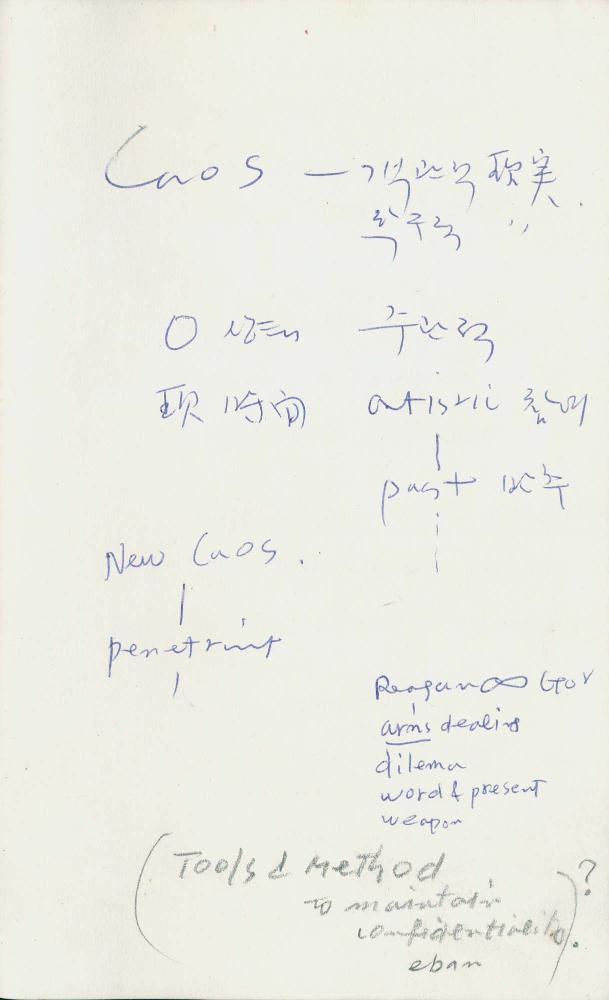 Caos — 객관적 現実
학구적 〃
O 상태 주관적
現 時間 artistic 참여
past
New Caos.
penetrint
Reagan ∞ Gov
arms dealing
dilema
word & present
weapon
(Tools & Method
to maintain
confidentiality.)?
eban